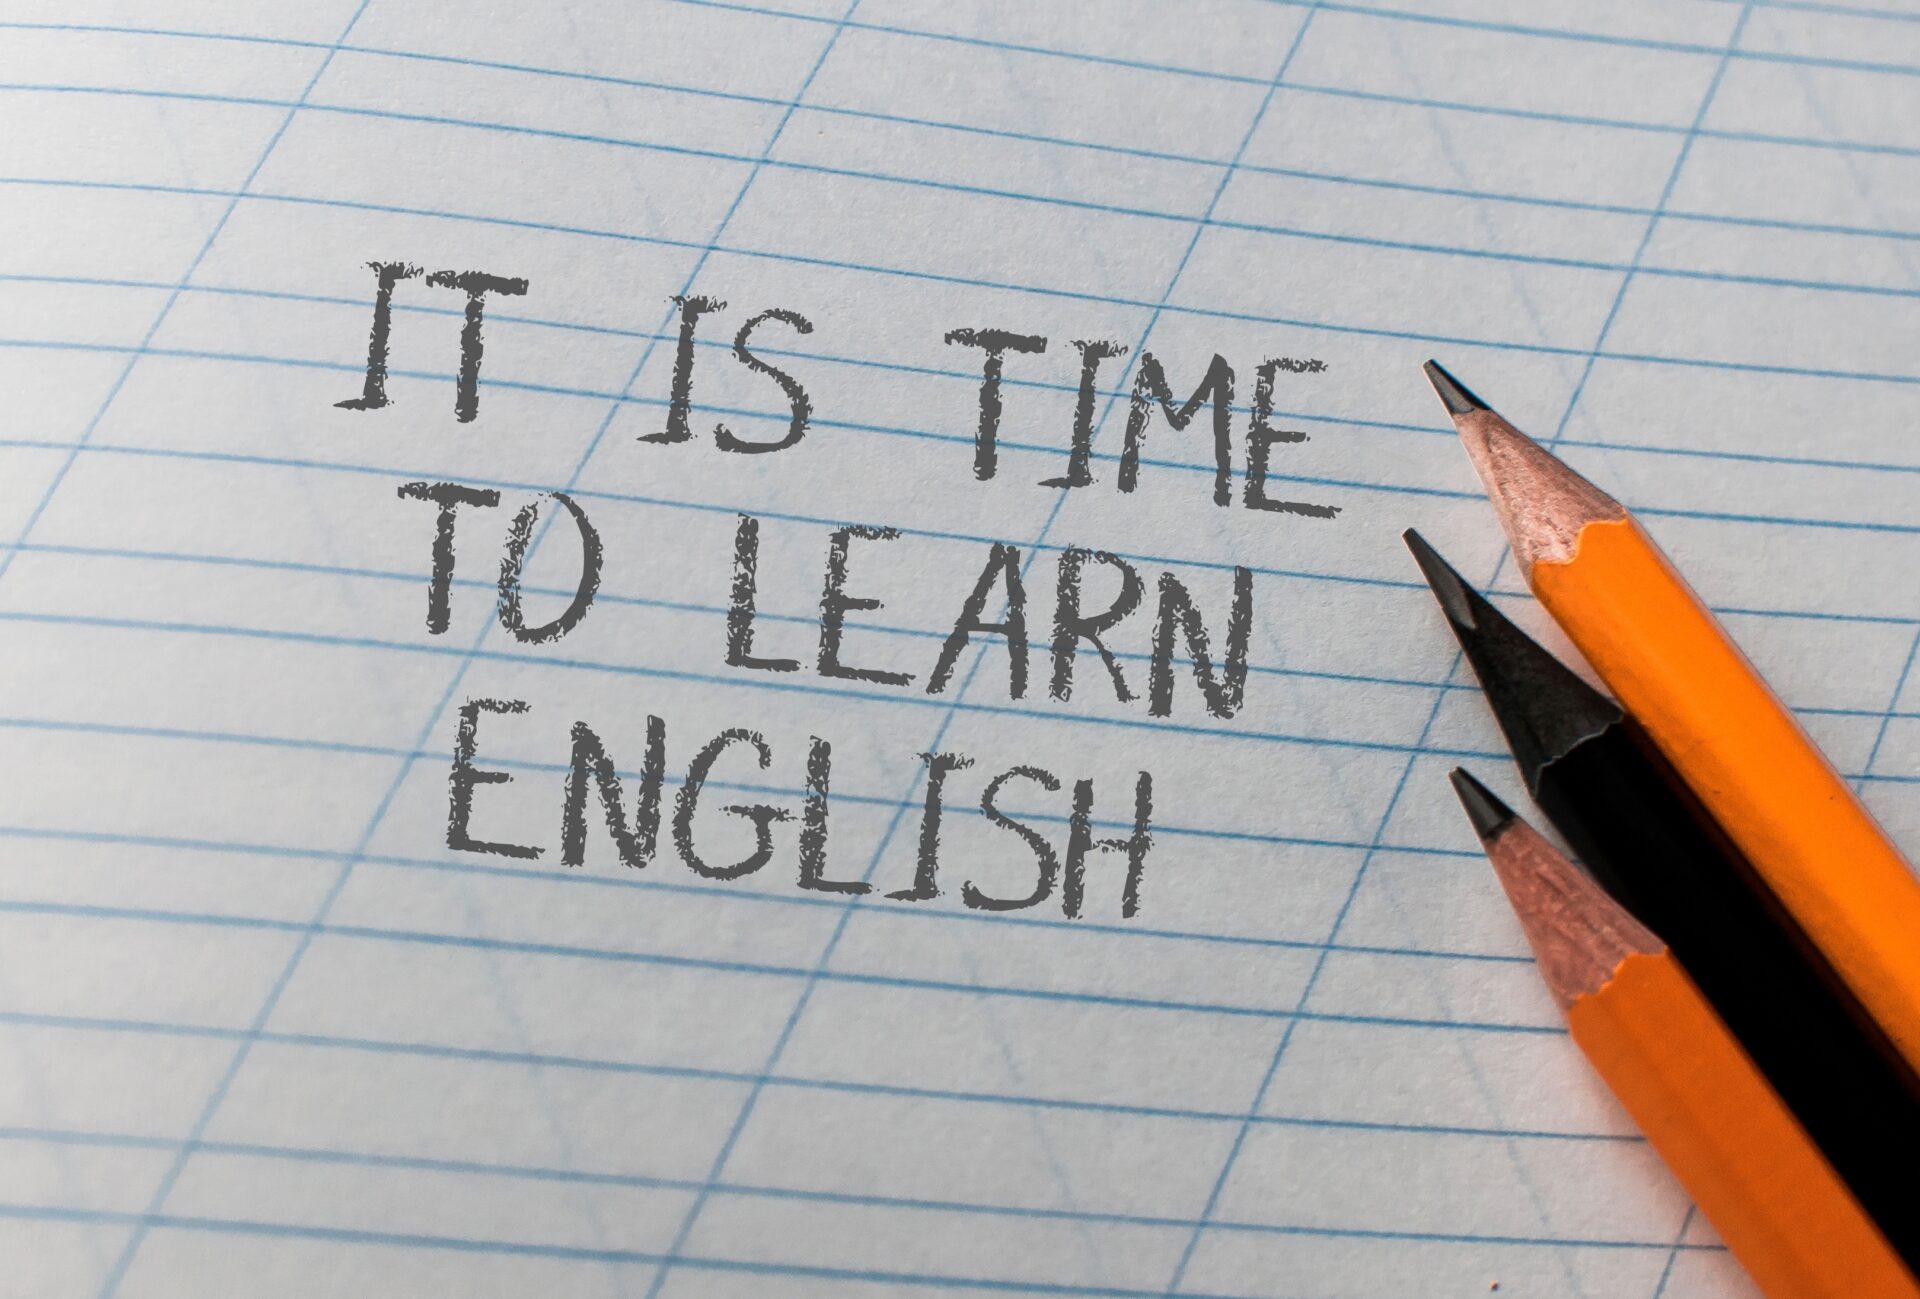 IT IS TIME
TO LEARN
ENGLISH